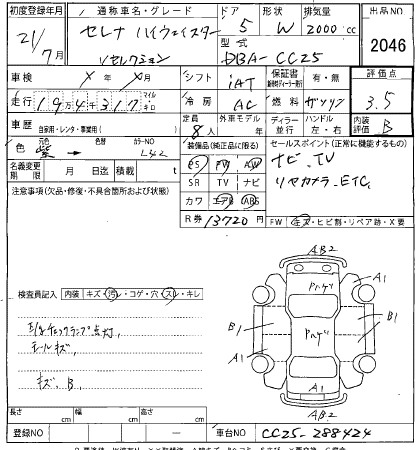 初度登録年月 通称車名・グレード ドア 形状 排気量 出品NO
21/7月 セレナ ハイウェイスター 5 W 2000 cc 2046
Vセレクション 型式 DBA-CC25
車検 X年 X月 シフト iAT 保証書 有・無 評価点
走行 19万4千317 マイル キロ 冷房 AC 燃料 ガソリン 3.5
車歴 自家用・レンタ・事業用( ) 定員 8人 外車モデル 年 ディーラー 並行 ハンドル 左・右 内装 B
色 元色 紫 → 色替 カラーNO L42 装備品(純正品に限る) セールスポイント(正常に機能するもの)
PS PW AW ナビ、TV
名義変更期限 月 日迄 積載 t SR TV ナビ リヤカメラ、ETC
注意事項(欠品・修復・不具合箇所および状態) カワ エアB ABS
R券 13720 円 FW キズ・ヒビ割・リペア跡・X要
検査員記入 内装 キズ・汚レ・コゲ・穴・スレ・キレ
E/gチェックランプ点灯
モールキズ
キズ、B
AB2
A1
Pハゲ
B1
B1
Pハゲ
A1
A1
AB2
長さ cm 幅 cm 高さ cm
登録NO 車台NO CC25-288424